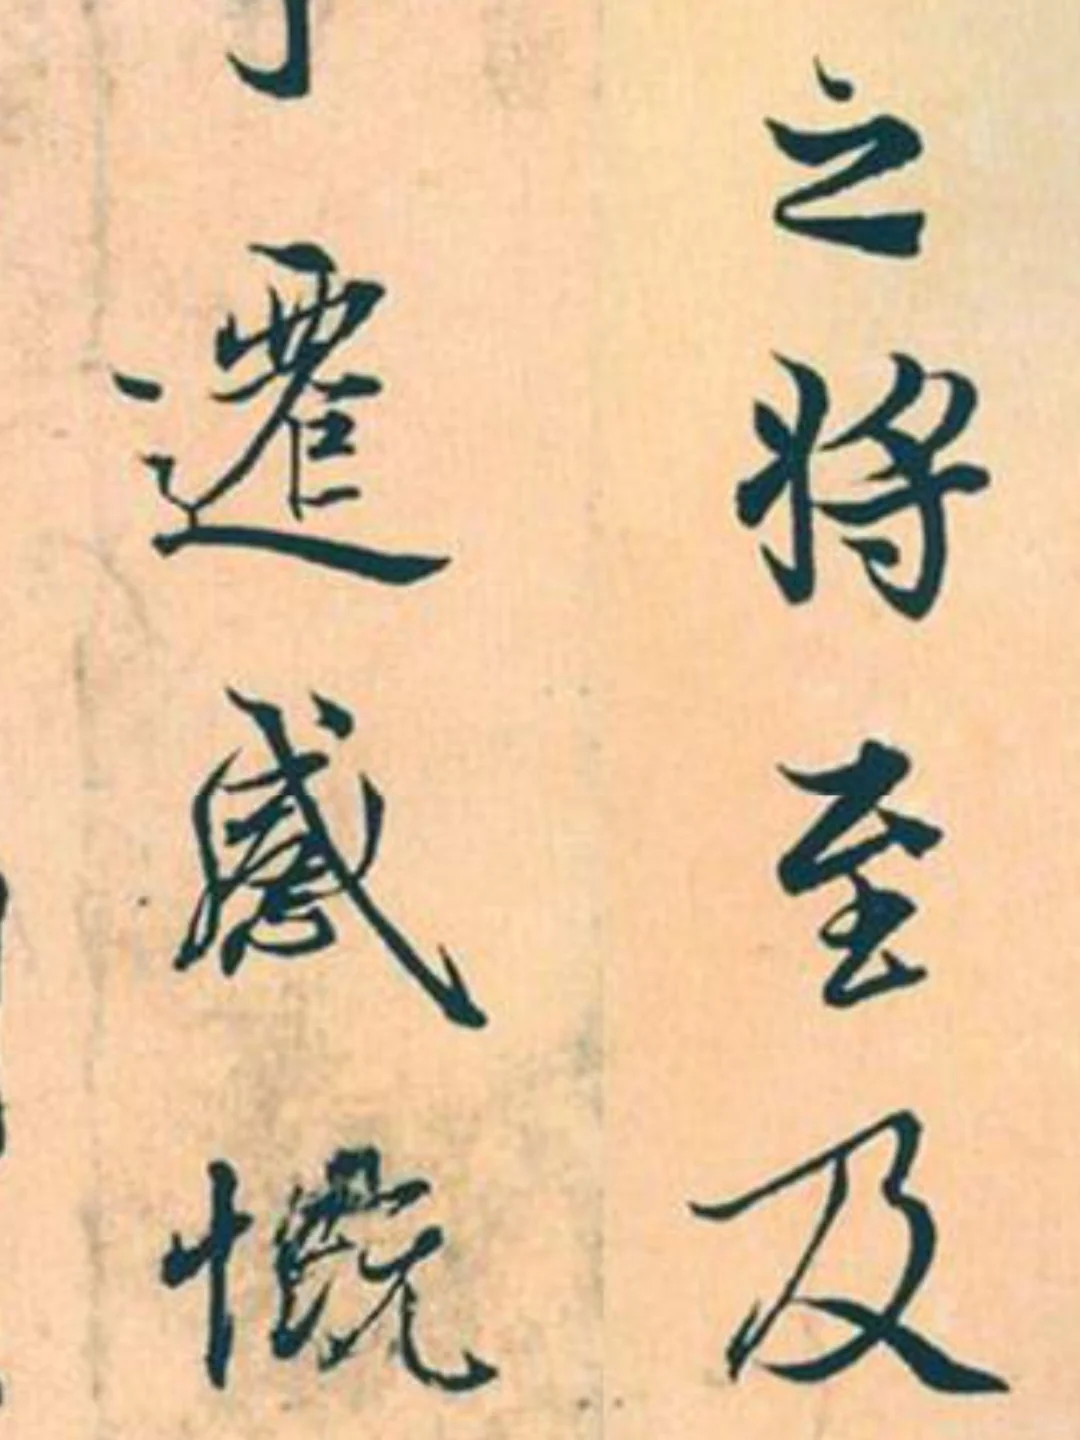 之将至及
遷感慨